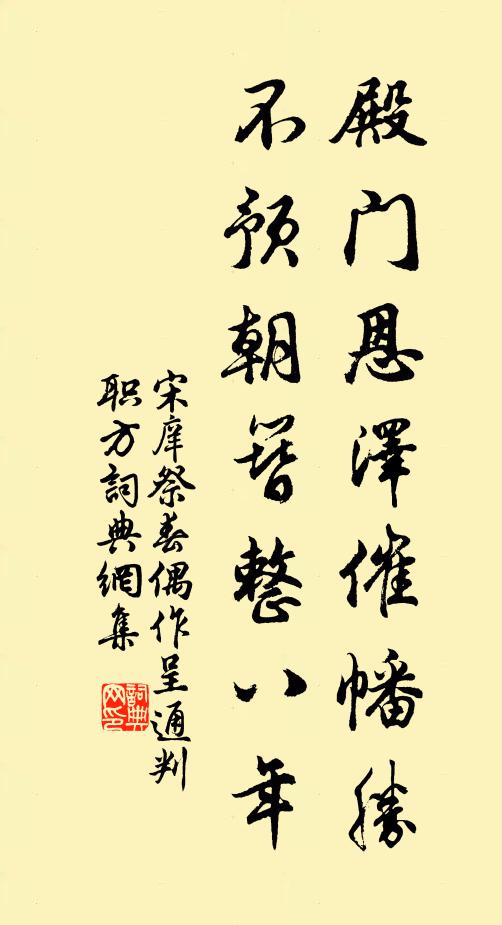 殿门恩澤催幡勝
不预朝簪整八年
宋庠祭春偶作呈通判
职方詞典網集
詞典网印